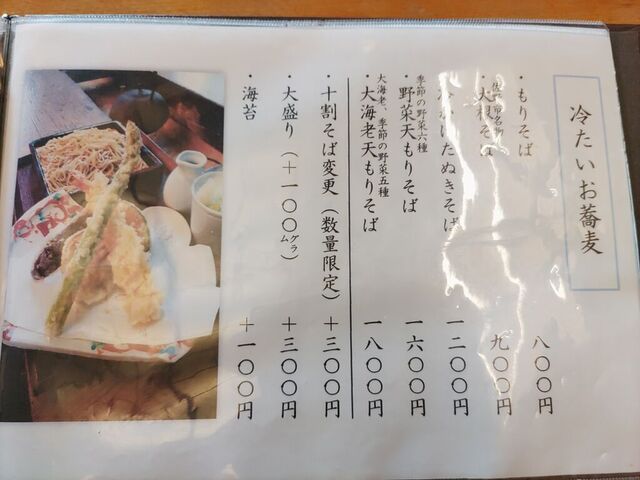 冷たいお蕎麦
・もりそば 八〇〇円
佐野市名物
・大根そば 九〇〇円
かけたぬきそば 一二〇〇円
季節の野菜六種
・野菜天もりそば 一六〇〇円
大海老、季節の野菜五種
・大海老天もりそば 一八〇〇円
・十割そば変更（数量限定） ＋三〇〇円
・大盛り（＋一〇〇グラム） ＋三〇〇円
・海苔 ＋一〇〇円